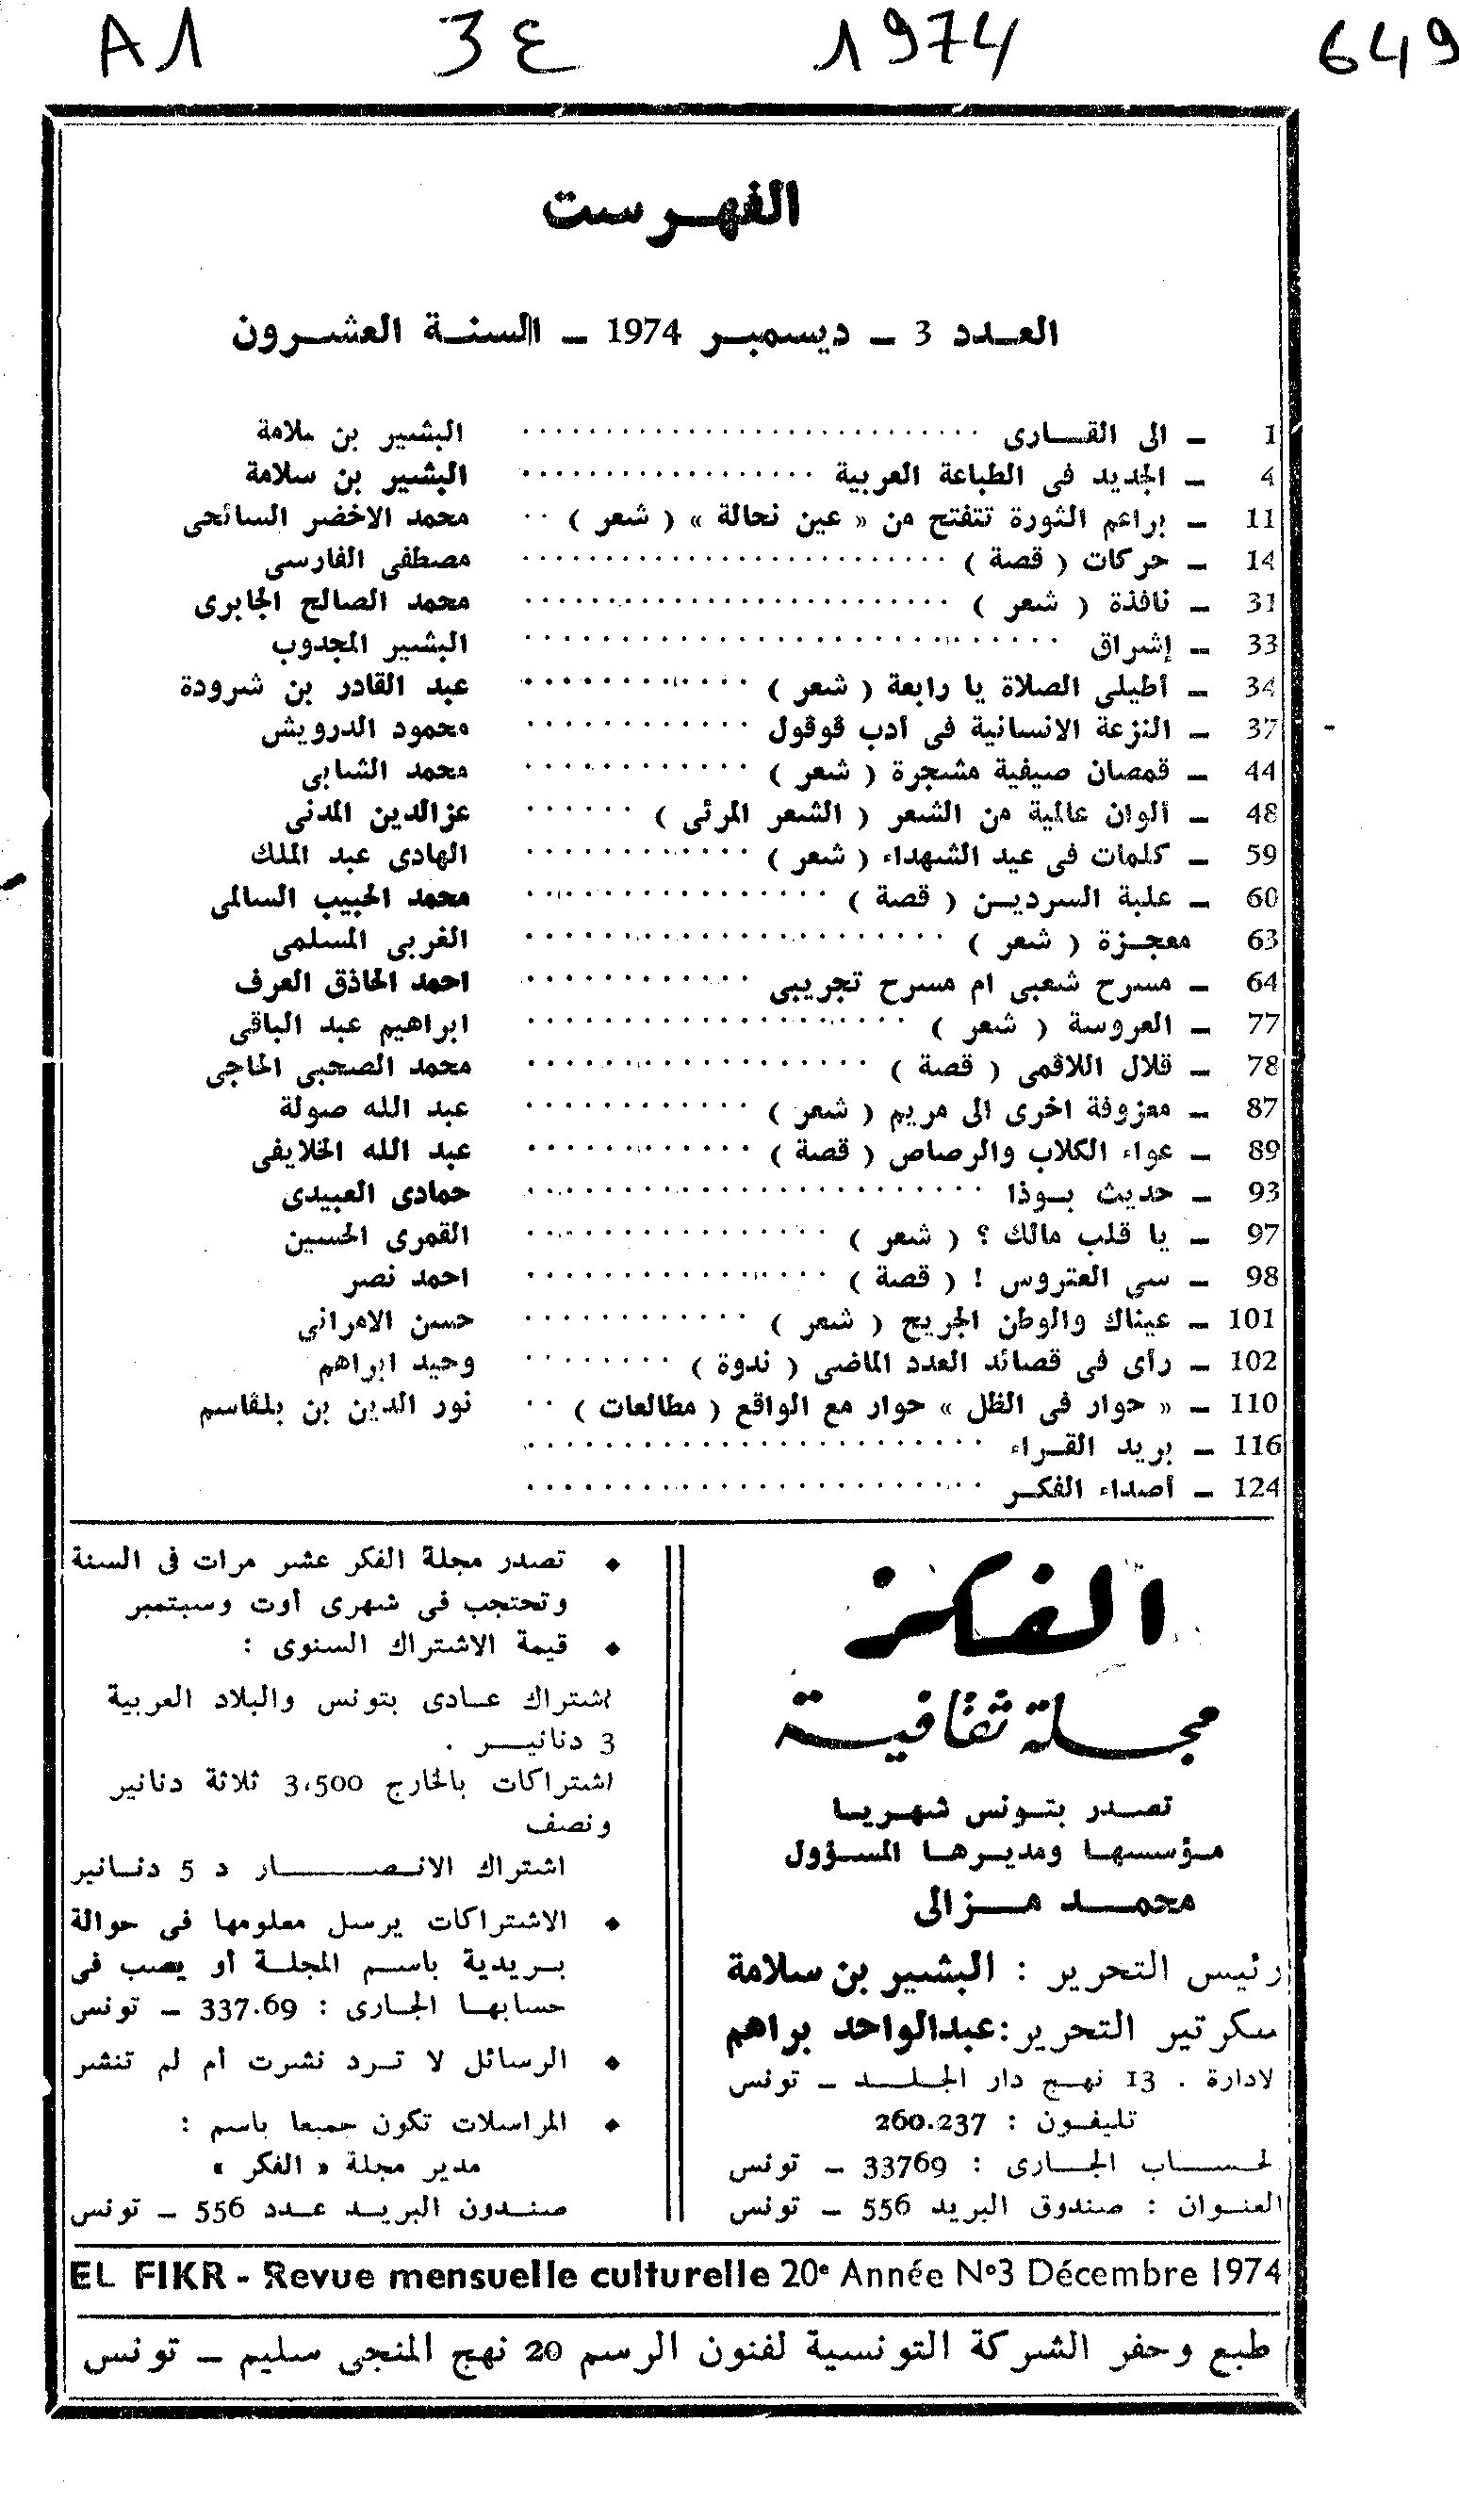 A1 3ع 1974 649
الفهرست
العدد 3 ـ ديسمبر 1974 ـ السنة العشرون
1 ـ الى القارى ............ البشير بن سلامة
4 ـ الجديد فى الطباعة العربية ............ البشير بن سلامة
11 ـ براعم الثورة تتفتح من « عين نحالة » ( شعر ) .. محمد الاخضر السائحى
14 ـ حركات ( قصة ) ............ مصطفى الفارسى
31 ـ نافذة ( شعر ) ............ محمد الصالح الجابرى
33 ـ إشراق ............ البشير المجدوب
34 ـ أطيلى الصلاة يا رابعة ( شعر ) ............ عبد القادر بن شرودة
37 ـ النزعة الانسانية فى أدب ڤوڤول ............ محمود الدرويش
44 ـ قمصان صيفية مشجرة ( شعر ) ............ محمد الشابى
48 ـ ألوان عالمية من الشعر ( الشعر المرئى ) ...... عزالدين المدنى
59 ـ كلمات فى عيد الشهداء ( شعر ) ............ الهادى عبد الملك
60 ـ علبة السردين ( قصة ) ............ محمد الحبيب السالمى
63 معجزة ( شعر ) ............ الغربى المسلمى
64 ـ مسرح شعبى ام مسرح تجريبى ............ احمد الحاذق العرف
77 ـ العروسة ( شعر ) ............ ابراهيم عبد الباقى
78 ـ قلال اللاقمى ( قصة ) ............ محمد الصحبى الحاجى
87 ـ معزوفة اخرى الى مريم ( شعر ) ............ عبد الله صولة
89 ـ عواء الكلاب والرصاص ( قصة ) ............ عبد الله الخلايفى
93 ـ حديث بوذا ............ حمادى العبيدى
97 ـ يا قلب مالك ؟ ( شعر ) ............ القمرى الحسين
98 ـ سى العتروس ! ( قصة ) ............ احمد نصر
101 ـ عيناك والوطن الجريح ( شعر ) ............ حسن الامرانى
102 ـ رأى فى قصائد العدد الماضى ( ندوة ) ........ وحيد ابراهم
110 ـ « حوار فى الظل » حوار مع الواقع ( مطالعات ) .. نور الدين بن بلقاسم
116 ـ بريد القراء ............
124 ـ أصداء الفكر ............
الفكر
مجلة ثقافية
تصدر بتونس شهريا
مؤسسها ومديرها المسؤول
محمد مزالى
رئيس التحرير : البشير بن سلامة
سكرتير التحرير : عبدالواحد براهم
لادارة . 13 نهج دار الجلد ـ تونس
تليفون : 260.237
لحساب الجارى : 33769 ـ تونس
العنوان : صندوق البريد 556 ـ تونس
♦ تصدر مجلة الفكر عشر مرات فى السنة
وتحتجب فى شهرى أوت وسبتمبر
♦ قيمة الاشتراك السنوى :
اشتراك عادى بتونس والبلاد العربية
3 دنانير .
اشتراكات بالخارج 3،500 ثلاثة دنانير
ونصف
اشتراك الانصار د 5 دنانير
♦ الاشتراكات يرسل معلومها فى حوالة
بريدية باسم المجلة أو يصب فى
حسابها الجارى : 337.69 ـ تونس
♦ الرسائل لا ترد نشرت أم لم تنشر
♦ المراسلات تكون جميعا باسم :
مدير مجلة « الفكر »
صندوق البريد عدد 556 ـ تونس
EL FIKR - Revue mensuelle culturelle 20e Année N°3 Décembre 1974
طبع وحفر الشركة التونسية لفنون الرسم 20 نهج المنجى سليم ـ تونس